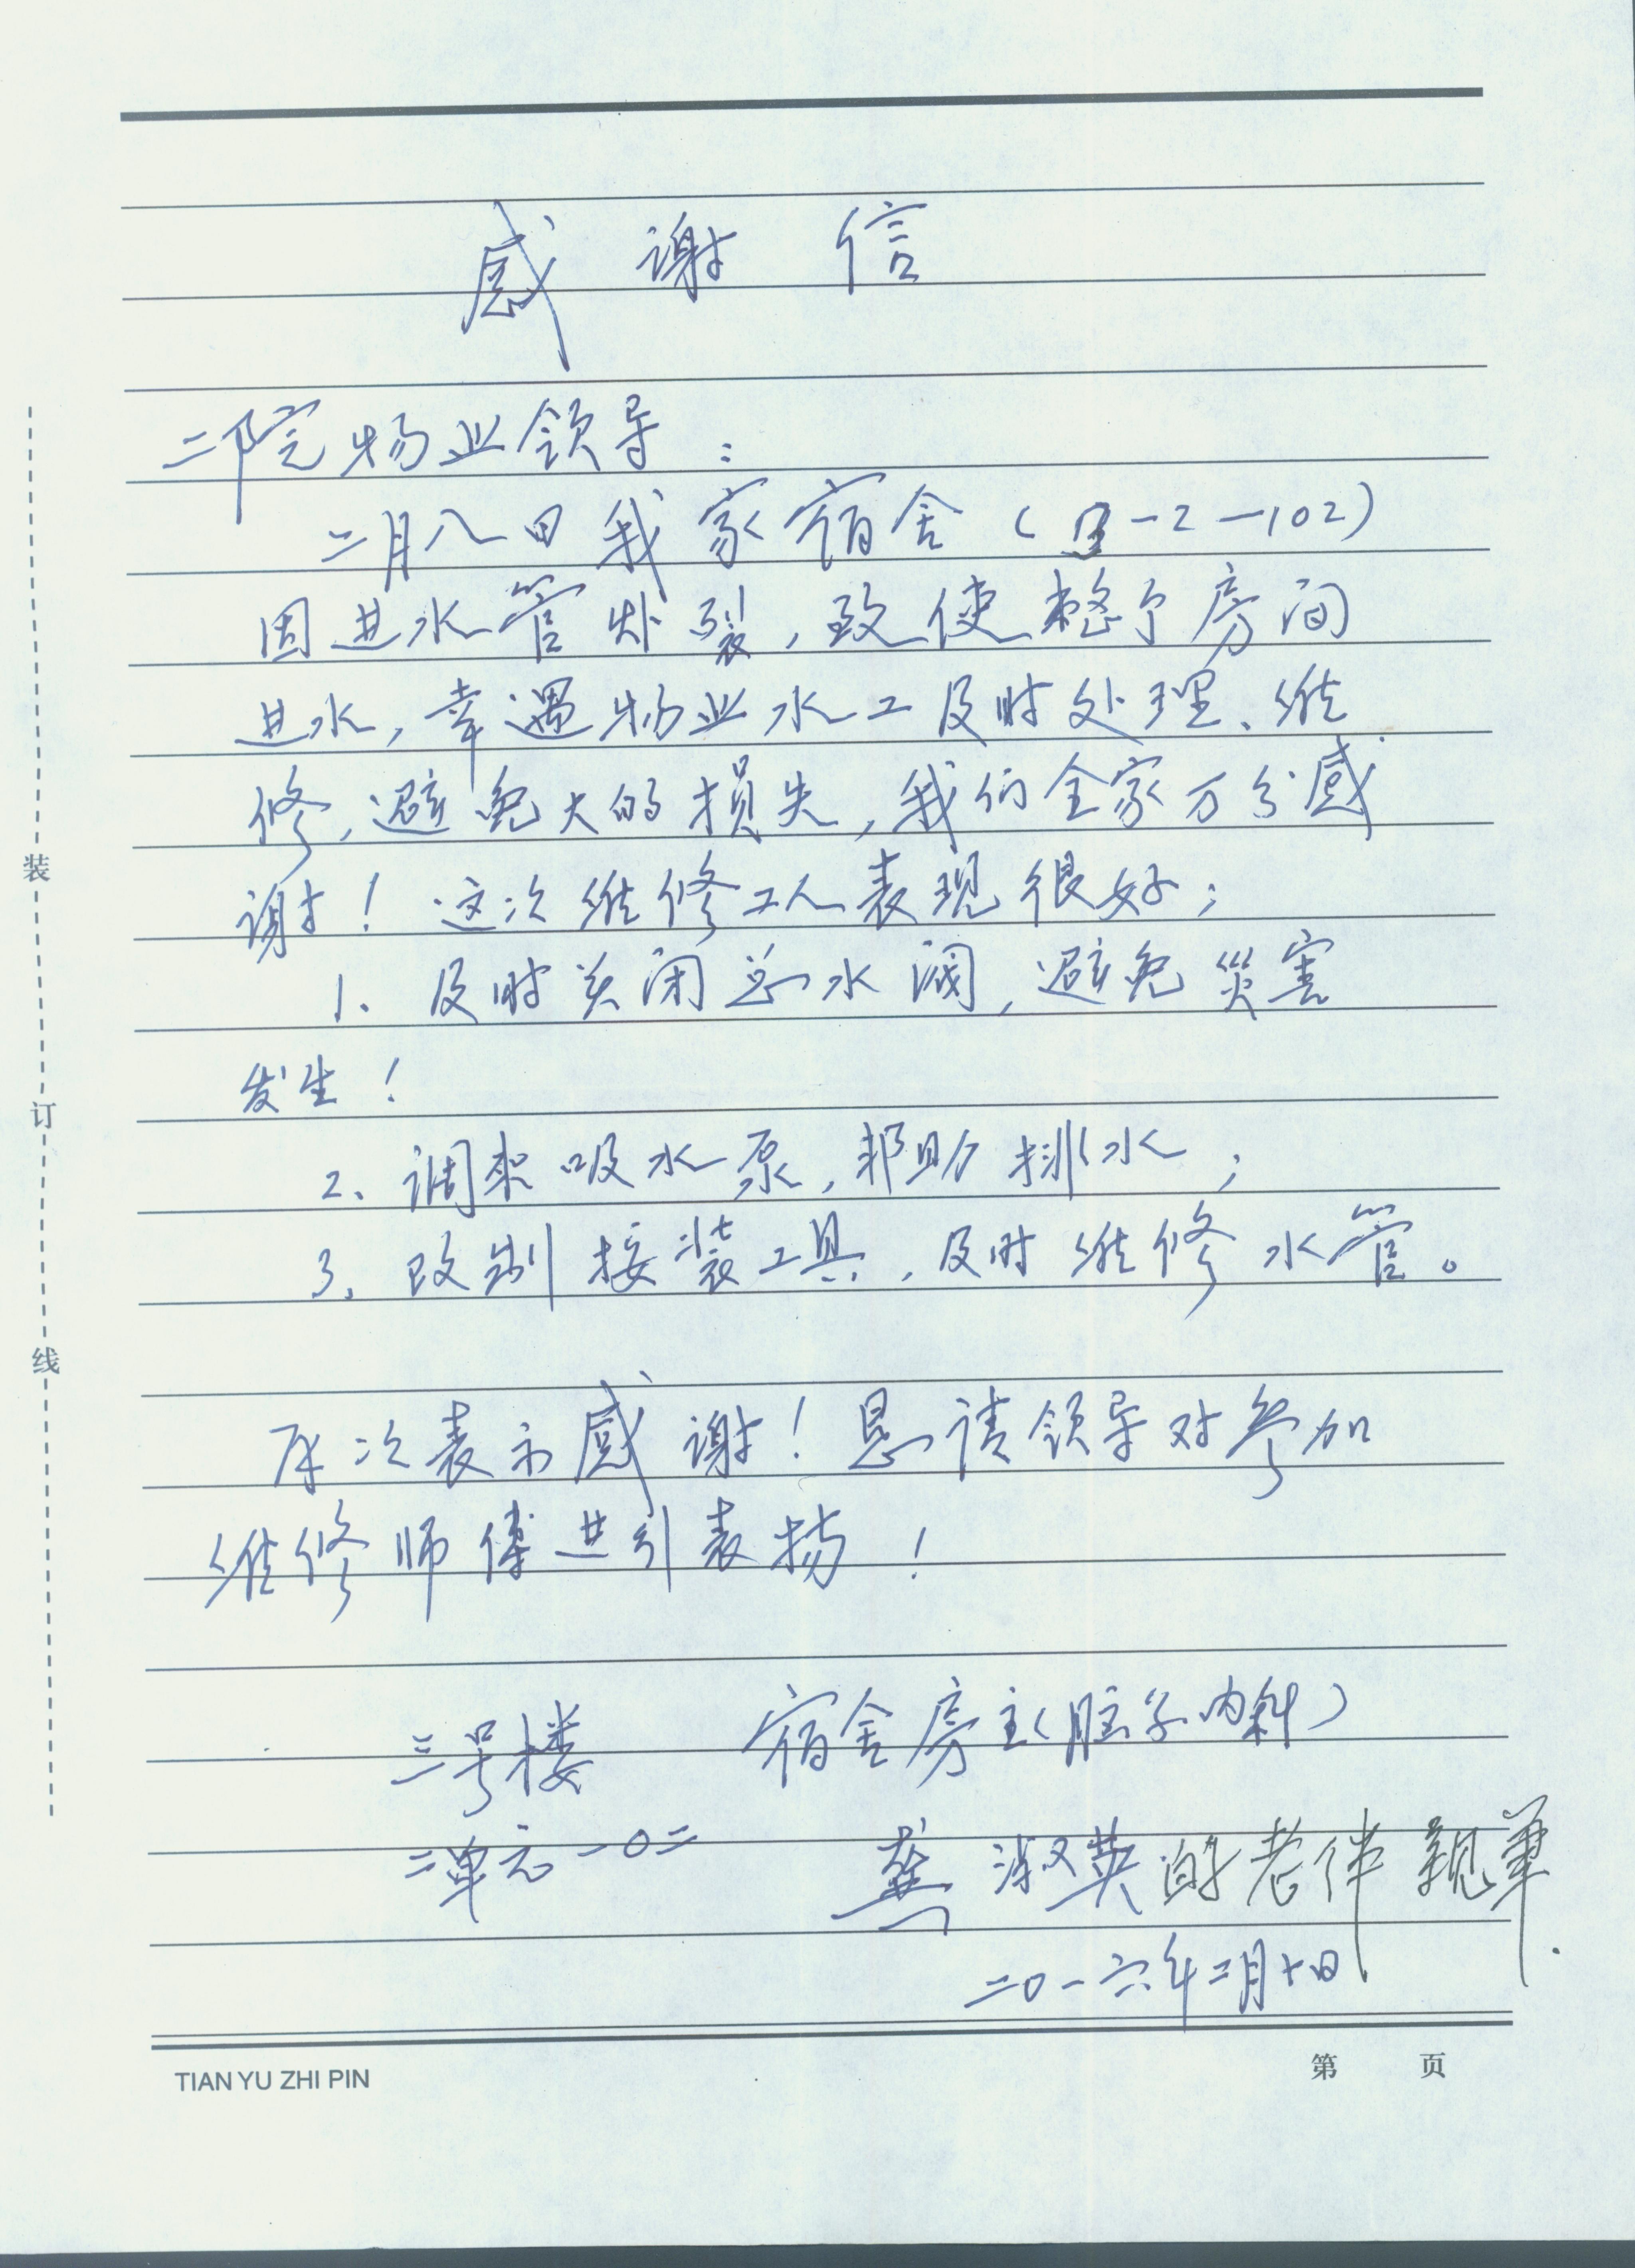 感谢信
二院物业领导：
二月八日我家宿舍（3-2-102）
因进水管炸裂，致使整个房间
进水，幸遇物业水工及时处理、维
修，避免大的损失，我们全家万分感
谢！这次维修工人表现很好；
1、及时关闭总水阀，避免災害
发生！
2、调来吸水泵，帮助排水；
3、改制接装工具，及时维修水管。
再次表示感谢！恳请领导对参加
维修师傅进行表扬！
三号楼 宿舍房主（脏内科）
二单元一0二 龚淑英的老伴親筆.
二0一六年二月十日
装
订
线
TIAN YU ZHI PIN
第 页